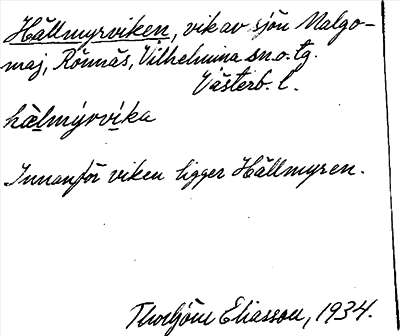 Hällmyrviken, vik av sjön Malgo-
maj, Rönnäs, Vilhelmina sn.o.tg.
Västerb. l.
hälmýrvíka
Innanför viken ligger Hällmyren.
Thorbjöne Eliasson, 1934.